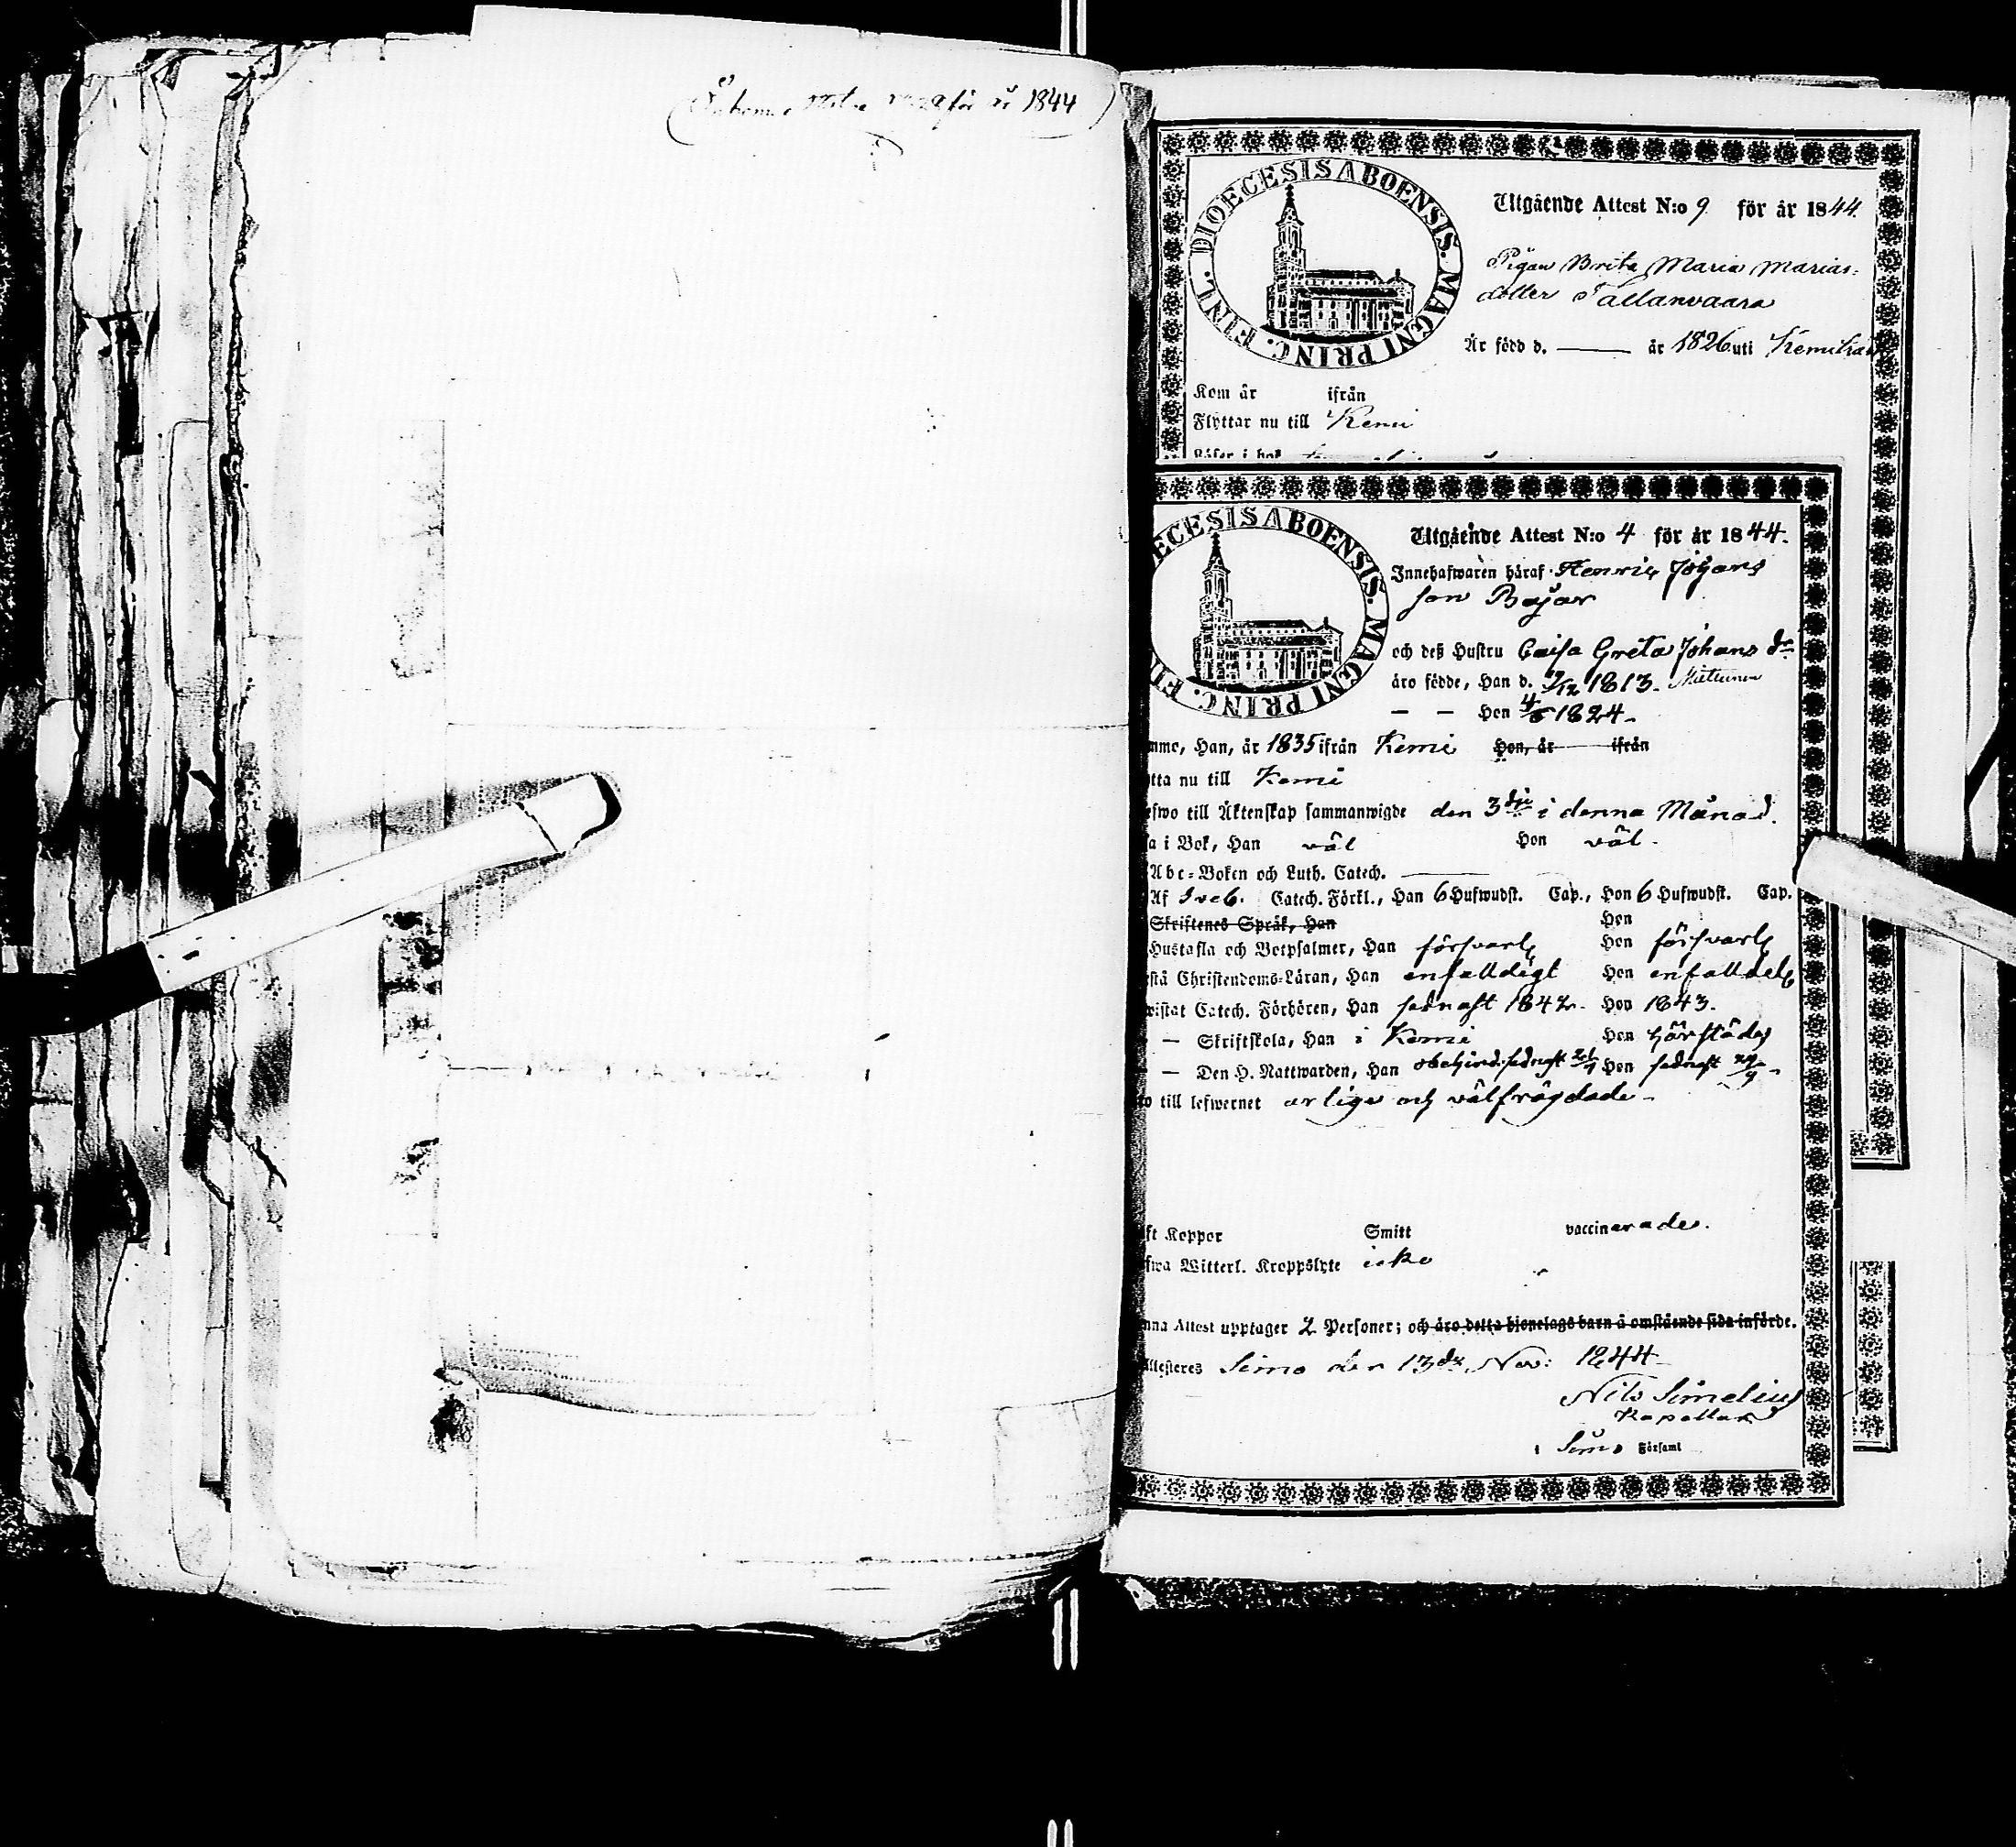 för år 1844
DIOECESIS ABOENSIS. MAGNI PRINC. FINL.
Utgående Attest N:o 9 för år 1844.
Pigan Brita Maria Marias-
dotter Tallanvaara
Är född d. —— år 1826 uti
Kom år ifrån
Flyttar nu till Kemi
Läser i bok
ECESIS ABOENSIS. MAGNI PRINC. FIN
Utgående Attest N:o 4 för år 1844.
Innehafwaren häraf Henric Johans
son Bajar
och deß Hustru Caisa Greta Johans dr
äro födde, Han d. 7/12 1813.
— — Hon 4/6 1824.
mme, Han, år 1835 ifrån Kemi Hon, år —— ifrån
tta nu till Kemi
efwo till Äktenskap sammanwigde den 3dje i denna Månad.
a i Bok, Han väl Hon väl.
Abc-Boken och Luth. Catech. ——
Af Catech. Förkl., Han 6 Hufwudst. Cap., Hon 6 Hufwudst. Cap.
Skriftenes Språk, Han Hon
Hustafla och Botpsalmer, Han försvarl. Hon försvarl.
stå Christendoms-Läran, Han enfalldigt Hon
wistat Catech. Förhören, Han sednast 1842. Hon 1843.
— Skriftskola, Han i Kemi Hon härstädes
— Den H. Nattwarden, Han sednast Hon sednast 29/9.
o till lefwernet ärlige och välfrägdade.
ft Koppor Smitt vaccinerade.
fwa Witterl. Kroppslyte icke
nna Attest upptager 2 Personer; och äro detta hjonelags barn å omstående sida införde.
Attesteras Simo den 13de Nov: 1844
Nils Simelius
Kapellan
i Simo Församl